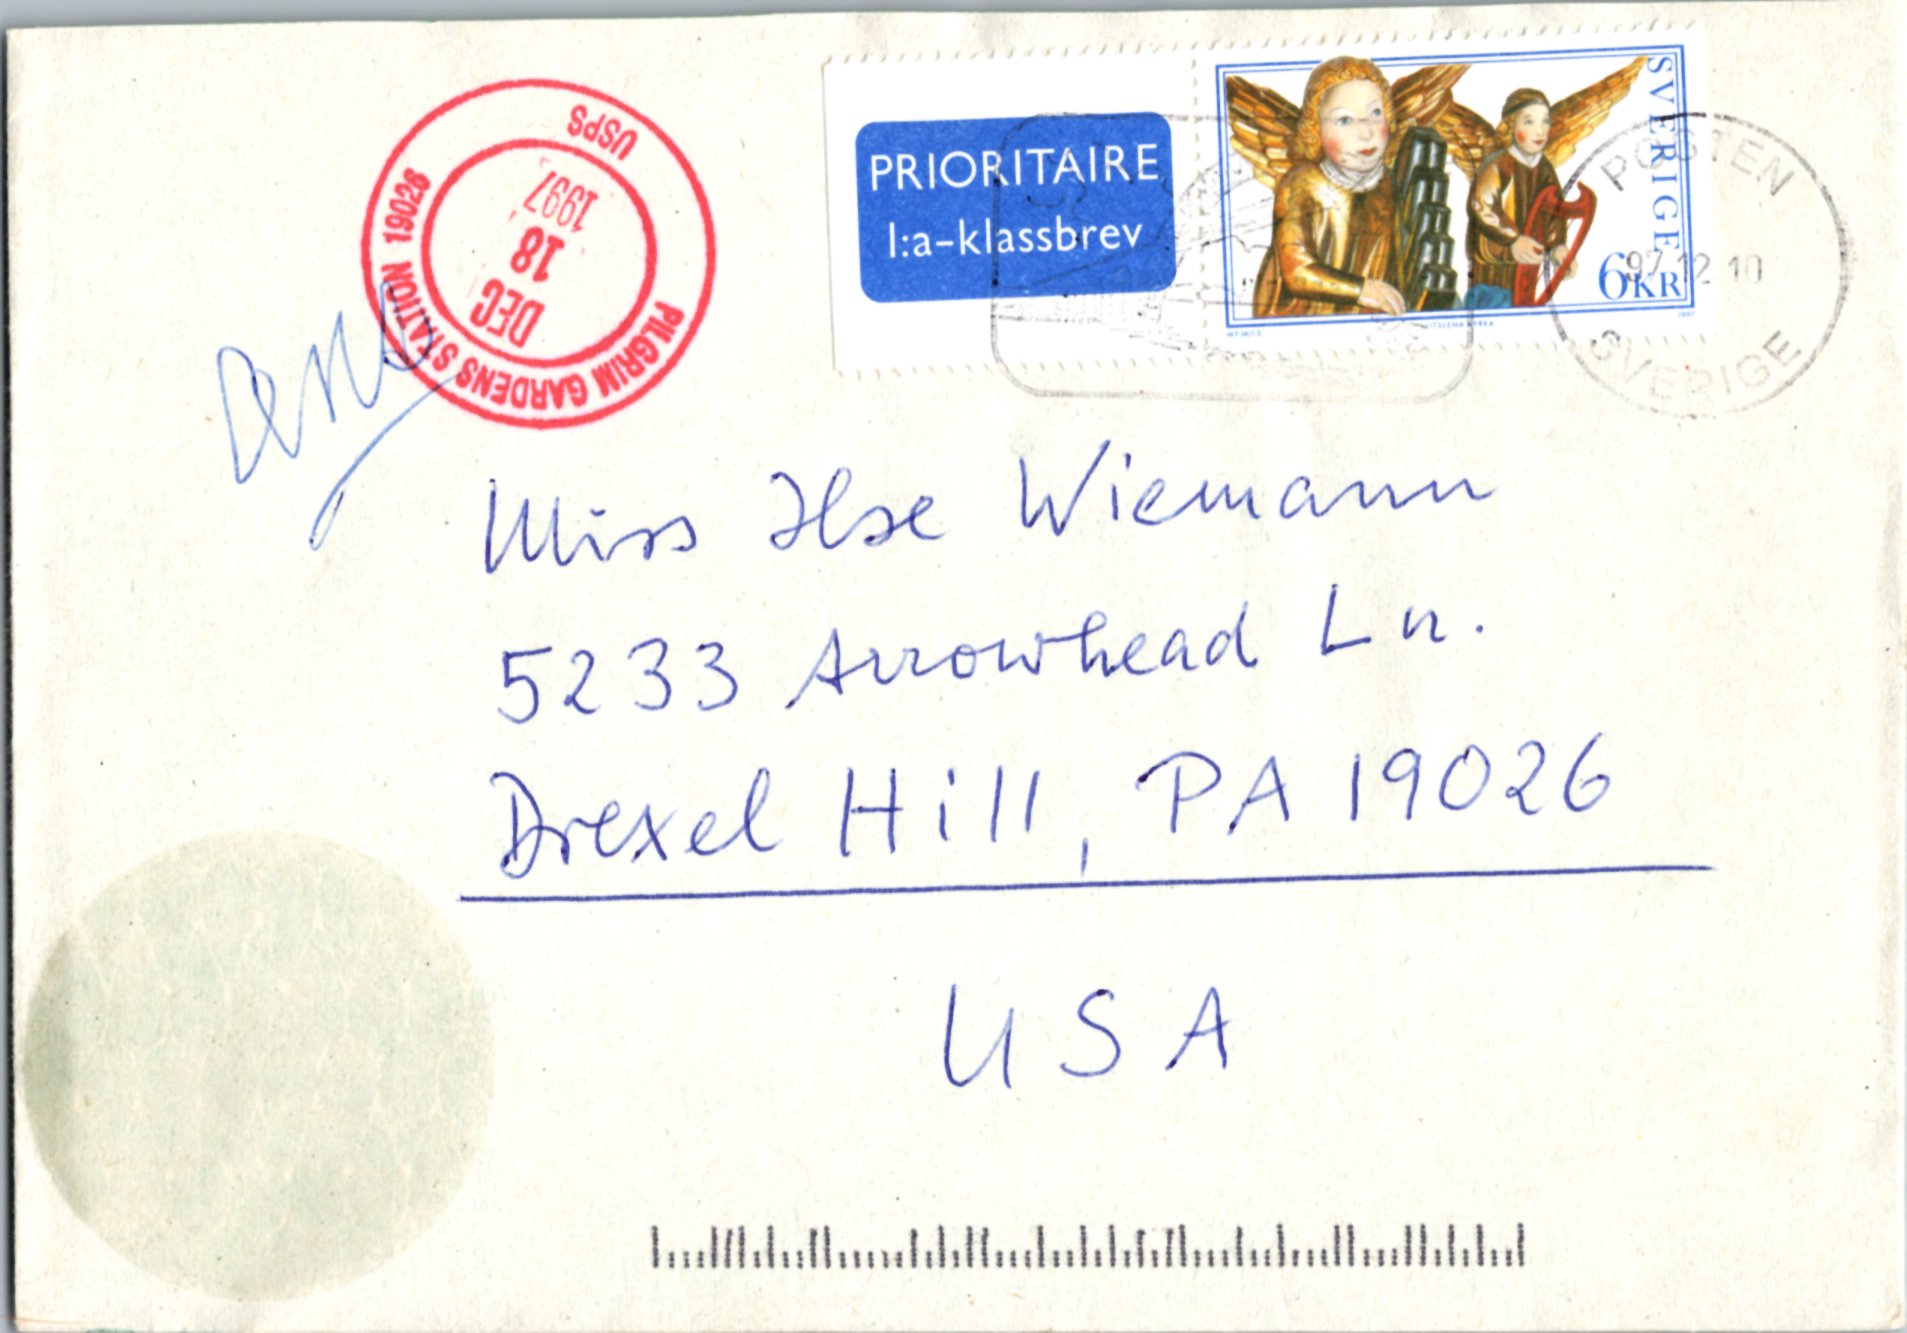 PILGRIM GARDENS STATION 19026
USPS
DEC
18
1997
PRIORITAIRE
1:a-klassbrev
SVERIGE
6KR
1997
POSTEN
97 12 10
SVERIGE
Miss Ilse Wiemann
5233 Arrowhead Ln.
Drexel Hill, PA 19026
USA